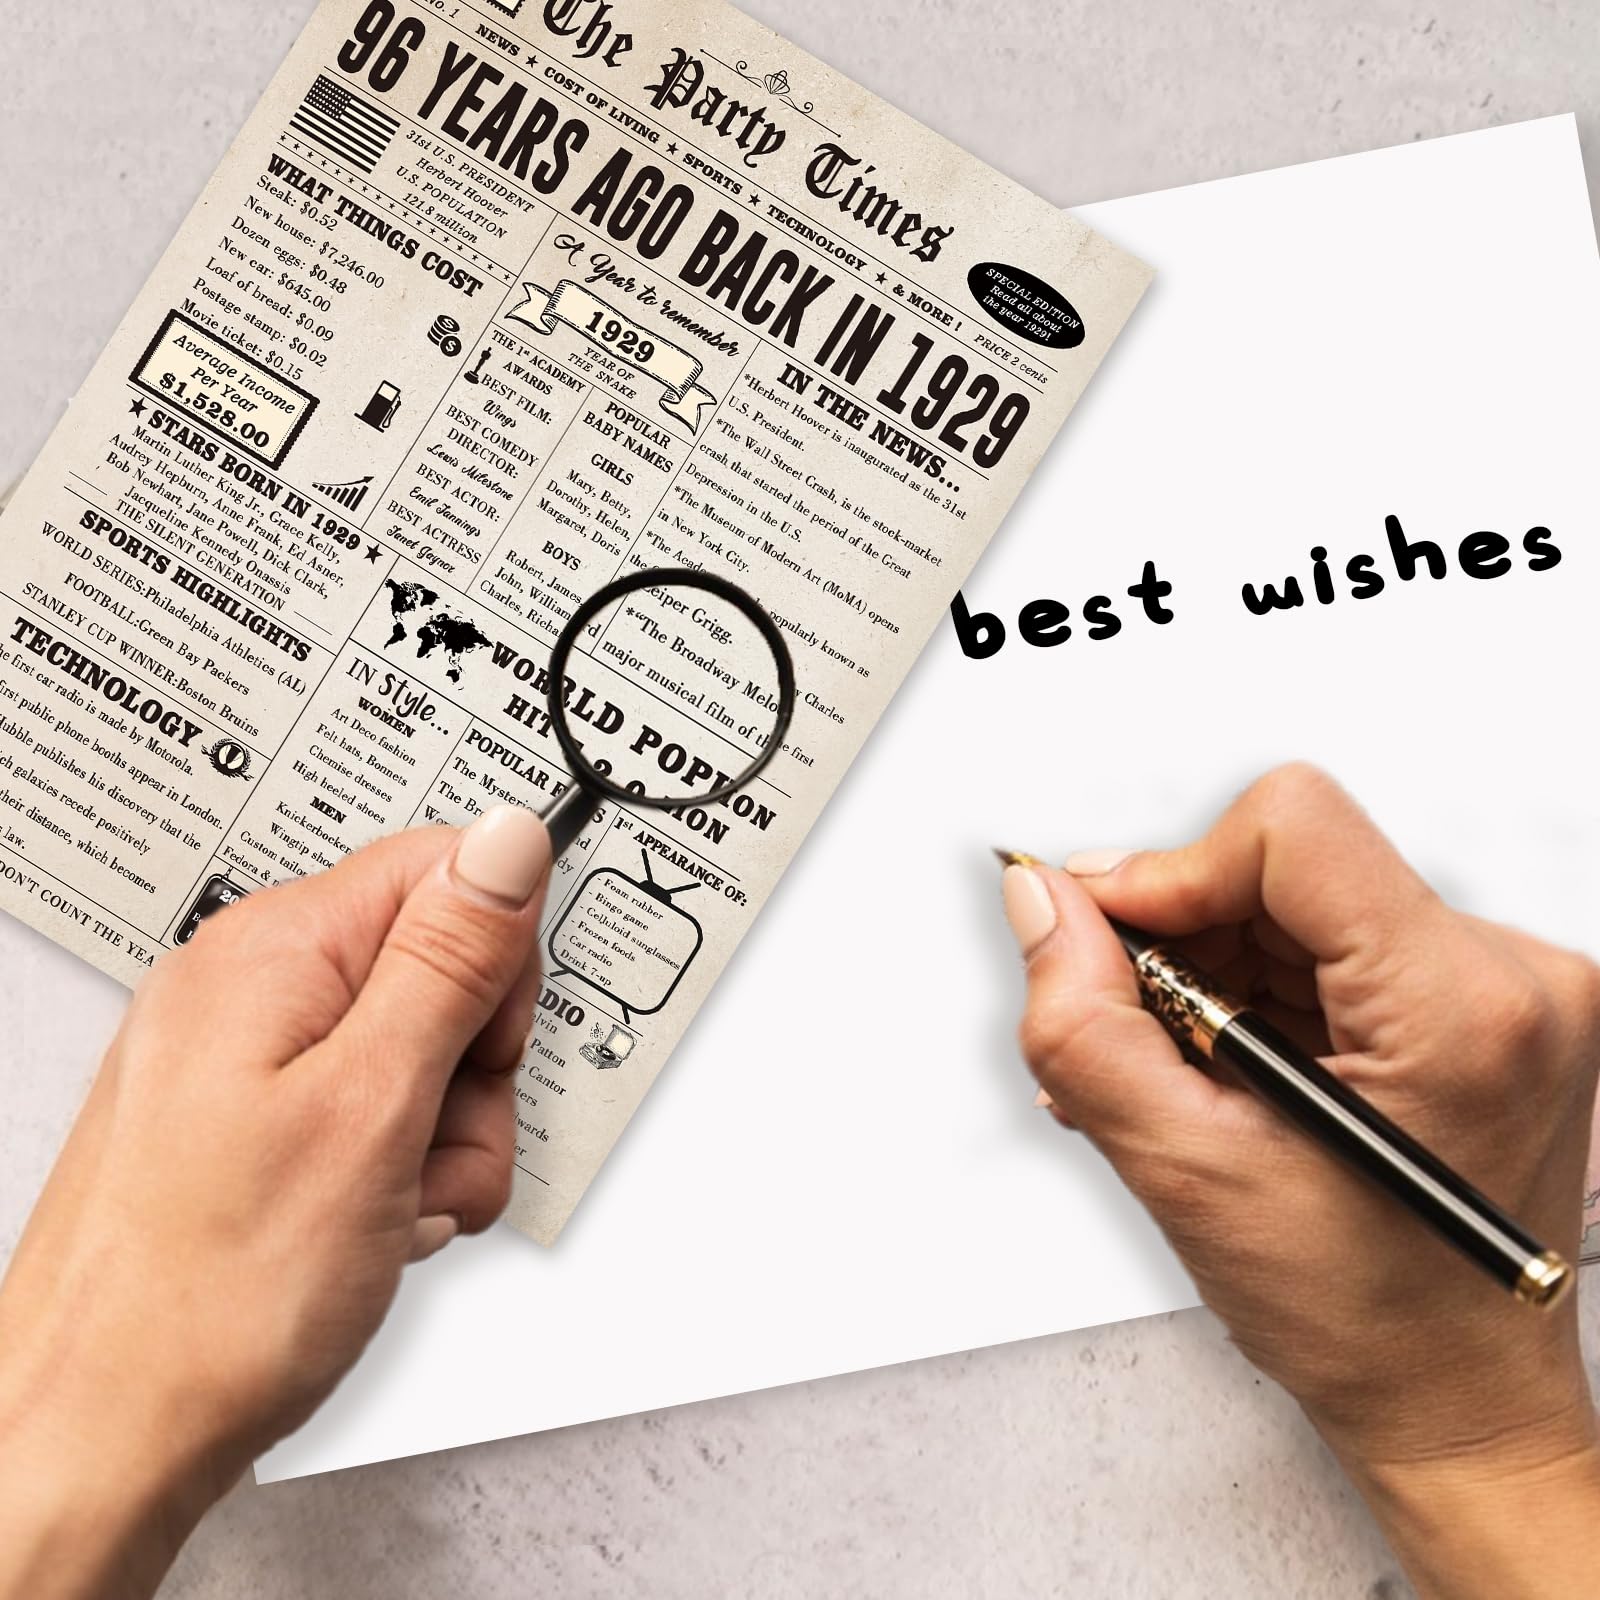 No. 1
The Party Times
NEWS ★ COST OF LIVING ★ SPORTS ★ TECHNOLOGY ★ & MORE! PRICE 2 cents
96 YEARS AGO BACK IN 1929
SPECIAL EDITION
Read all about
the year 1929!
31st U.S. PRESIDENT
Herbert Hoover
U.S. POPULATION
121.8 million
WHAT THINGS COST
Steak: $0.52
New house: $7,246.00
Dozen eggs: $0.48
New car: $645.00
Loaf of bread: $0.09
Postage stamp: $0.02
Movie ticket: $0.15
Average Income
Per Year
$1,528.00
★ STARS BORN IN 1929 ★
Martin Luther King Jr., Grace Kelly,
Audrey Hepburn, Anne Frank, Ed Asner,
Bob Newhart, Jane Powell, Dick Clark,
Jacqueline Kennedy Onassis
THE SILENT GENERATION
SPORTS HIGHLIGHTS
WORLD SERIES:Philadelphia Athletics (AL)
FOOTBALL:Green Bay Packers
STANLEY CUP WINNER:Boston Bruins
TECHNOLOGY
he first car radio is made by Motorola.
first public phone booths appear in London.
Hubble publishes his discovery that the
ch galaxies recede positively
their distance, which becomes
s law.
DON'T COUNT THE YEA
A Year to remember
1929
YEAR OF
THE SNAKE
THE 1st ACADEMY
AWARDS
BEST FILM:
Wings
BEST COMEDY
DIRECTOR:
Lewis Milestone
BEST ACTOR:
Emil Jannings
BEST ACTRESS
Janet Gaynor
POPULAR
BABY NAMES
GIRLS
Mary, Betty,
Dorothy, Helen,
Margaret, Doris
BOYS
Robert, James,
John, William
Charles, Richard
IN THE NEWS...
*Herbert Hoover is inaugurated as the 31st
U.S. President.
*The Wall Street Crash, is the stock-market
crash that started the period of the Great
Depression in the U.S.
*The Museum of Modern Art (MoMA) opens
in New York City.
*The Acade popularly known as
the
Leiper Grigg. Charles
*“The Broadway Melo
major musical film of the first
WORLD POP ION
HIT 2.0 ION
IN Style...
WOMEN
Art Deco fashion
Felt hats, Bonnets
Chemise dresses
High heeled shoes
MEN
Knickerbocke
Wingtip shoe
Custom tailor
Fedora &
20
POPULAR F S
The Mysterio
The Br
Wo
1st APPEARANCE OF:
- Foam rubber
- Bingo game
- Celluloid sunglasses
- Frozen foods
- Car radio
Drink 7-up
ADIO
elvin
Patton
e Cantor
aters
dwards
er
best wishes